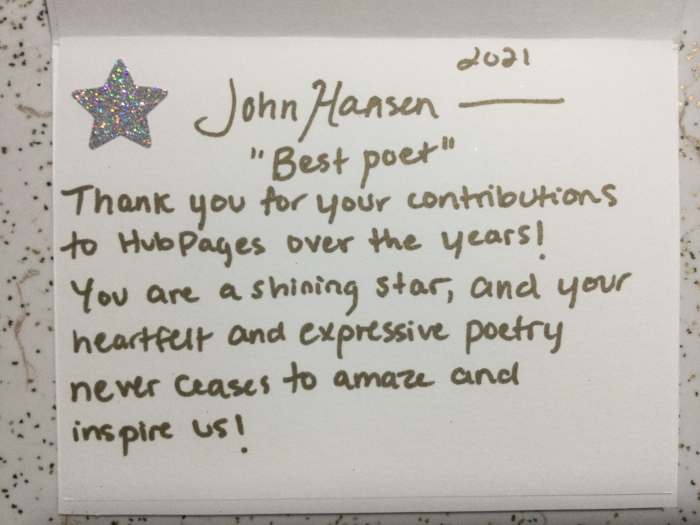 2021
John Hansen
"Best poet"
Thank you for your contributions
to HubPages over the years!
You are a shining star, and your
heartfelt and expressive poetry
never ceases to amaze and
inspire us!